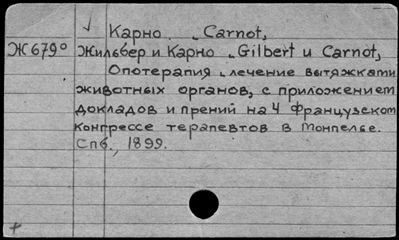 Карно „Carnot„
Ж679º Жильбер и Карно „Gilbert и Carnot„
Опотерапия, лечение вытяжками
животных органов, с приложением
докладов и прений на 4 Французском
конгрессе терапевтов в Монпелье.
Спб., 1899.